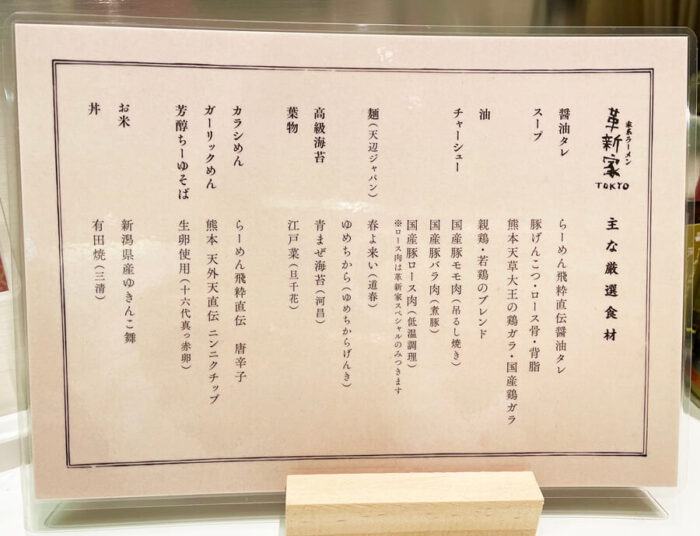 家系ラーメン
革新家
TOKYO
主な厳選食材
醤油タレ　らーめん飛粋直伝醤油タレ
スープ　豚げんこつ・ロース骨・背脂
熊本天草大王の鶏ガラ・国産鶏ガラ
油　親鶏・若鶏のブレンド
チャーシュー　国産豚モモ肉（吊るし焼き）
国産豚バラ肉（煮豚）
国産豚ロース肉（低温調理）
※ロース肉は革新家スペシャルのみつきます
麺（天辺ジャパン）　春よ来い（道春）
ゆめちから（ゆめちからげんき）
高級海苔　青まぜ海苔（河昌）
葉物　江戸菜（旦千花）
カラシめん　らーめん飛粋直伝　唐辛子
ガーリックめん　熊本 天外天直伝 ニンニクチップ
芳醇ちーゆそば　生卵使用（十六代真っ赤卵）
お米　新潟県産ゆきんこ舞
丼　有田焼（三清）